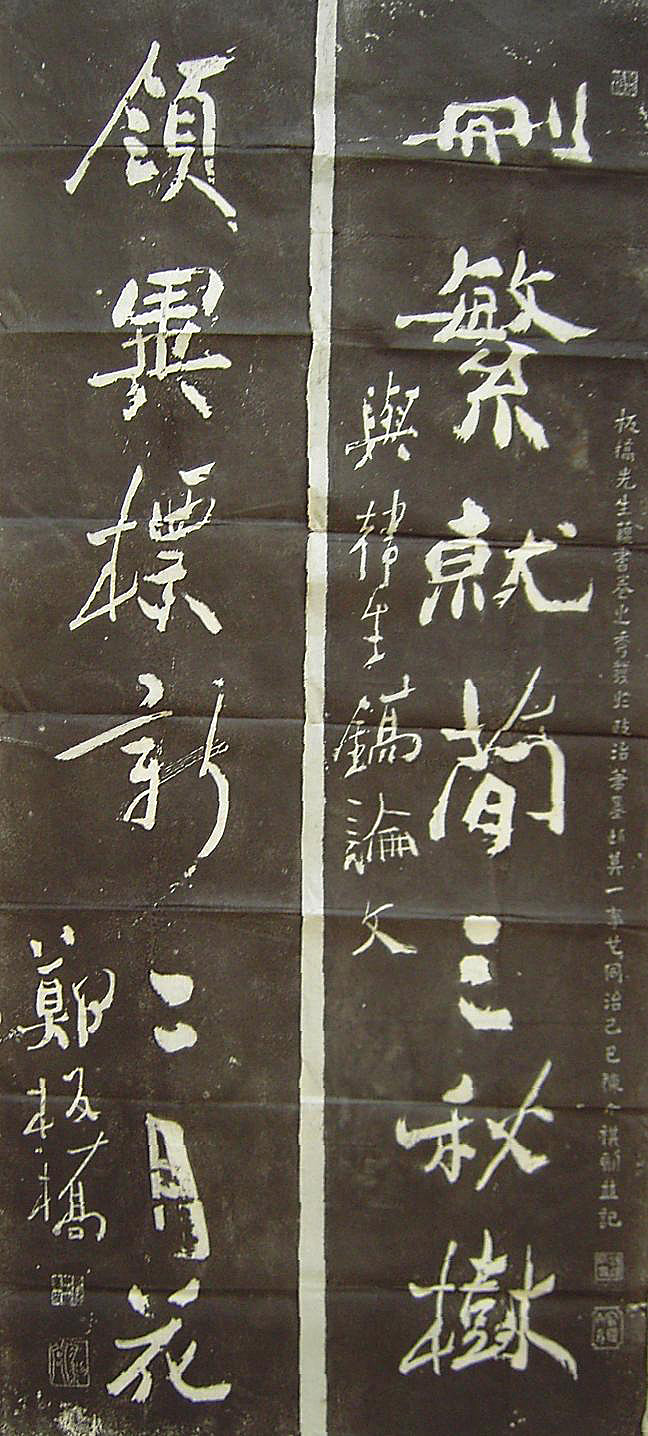 板橋先生蘊書卷之秀發於政治筆墨其一事也同治己巳陳介祺並記
刪繁就簡三秋樹
與韓生鎬論文
領異標新二月花
鄭板橋